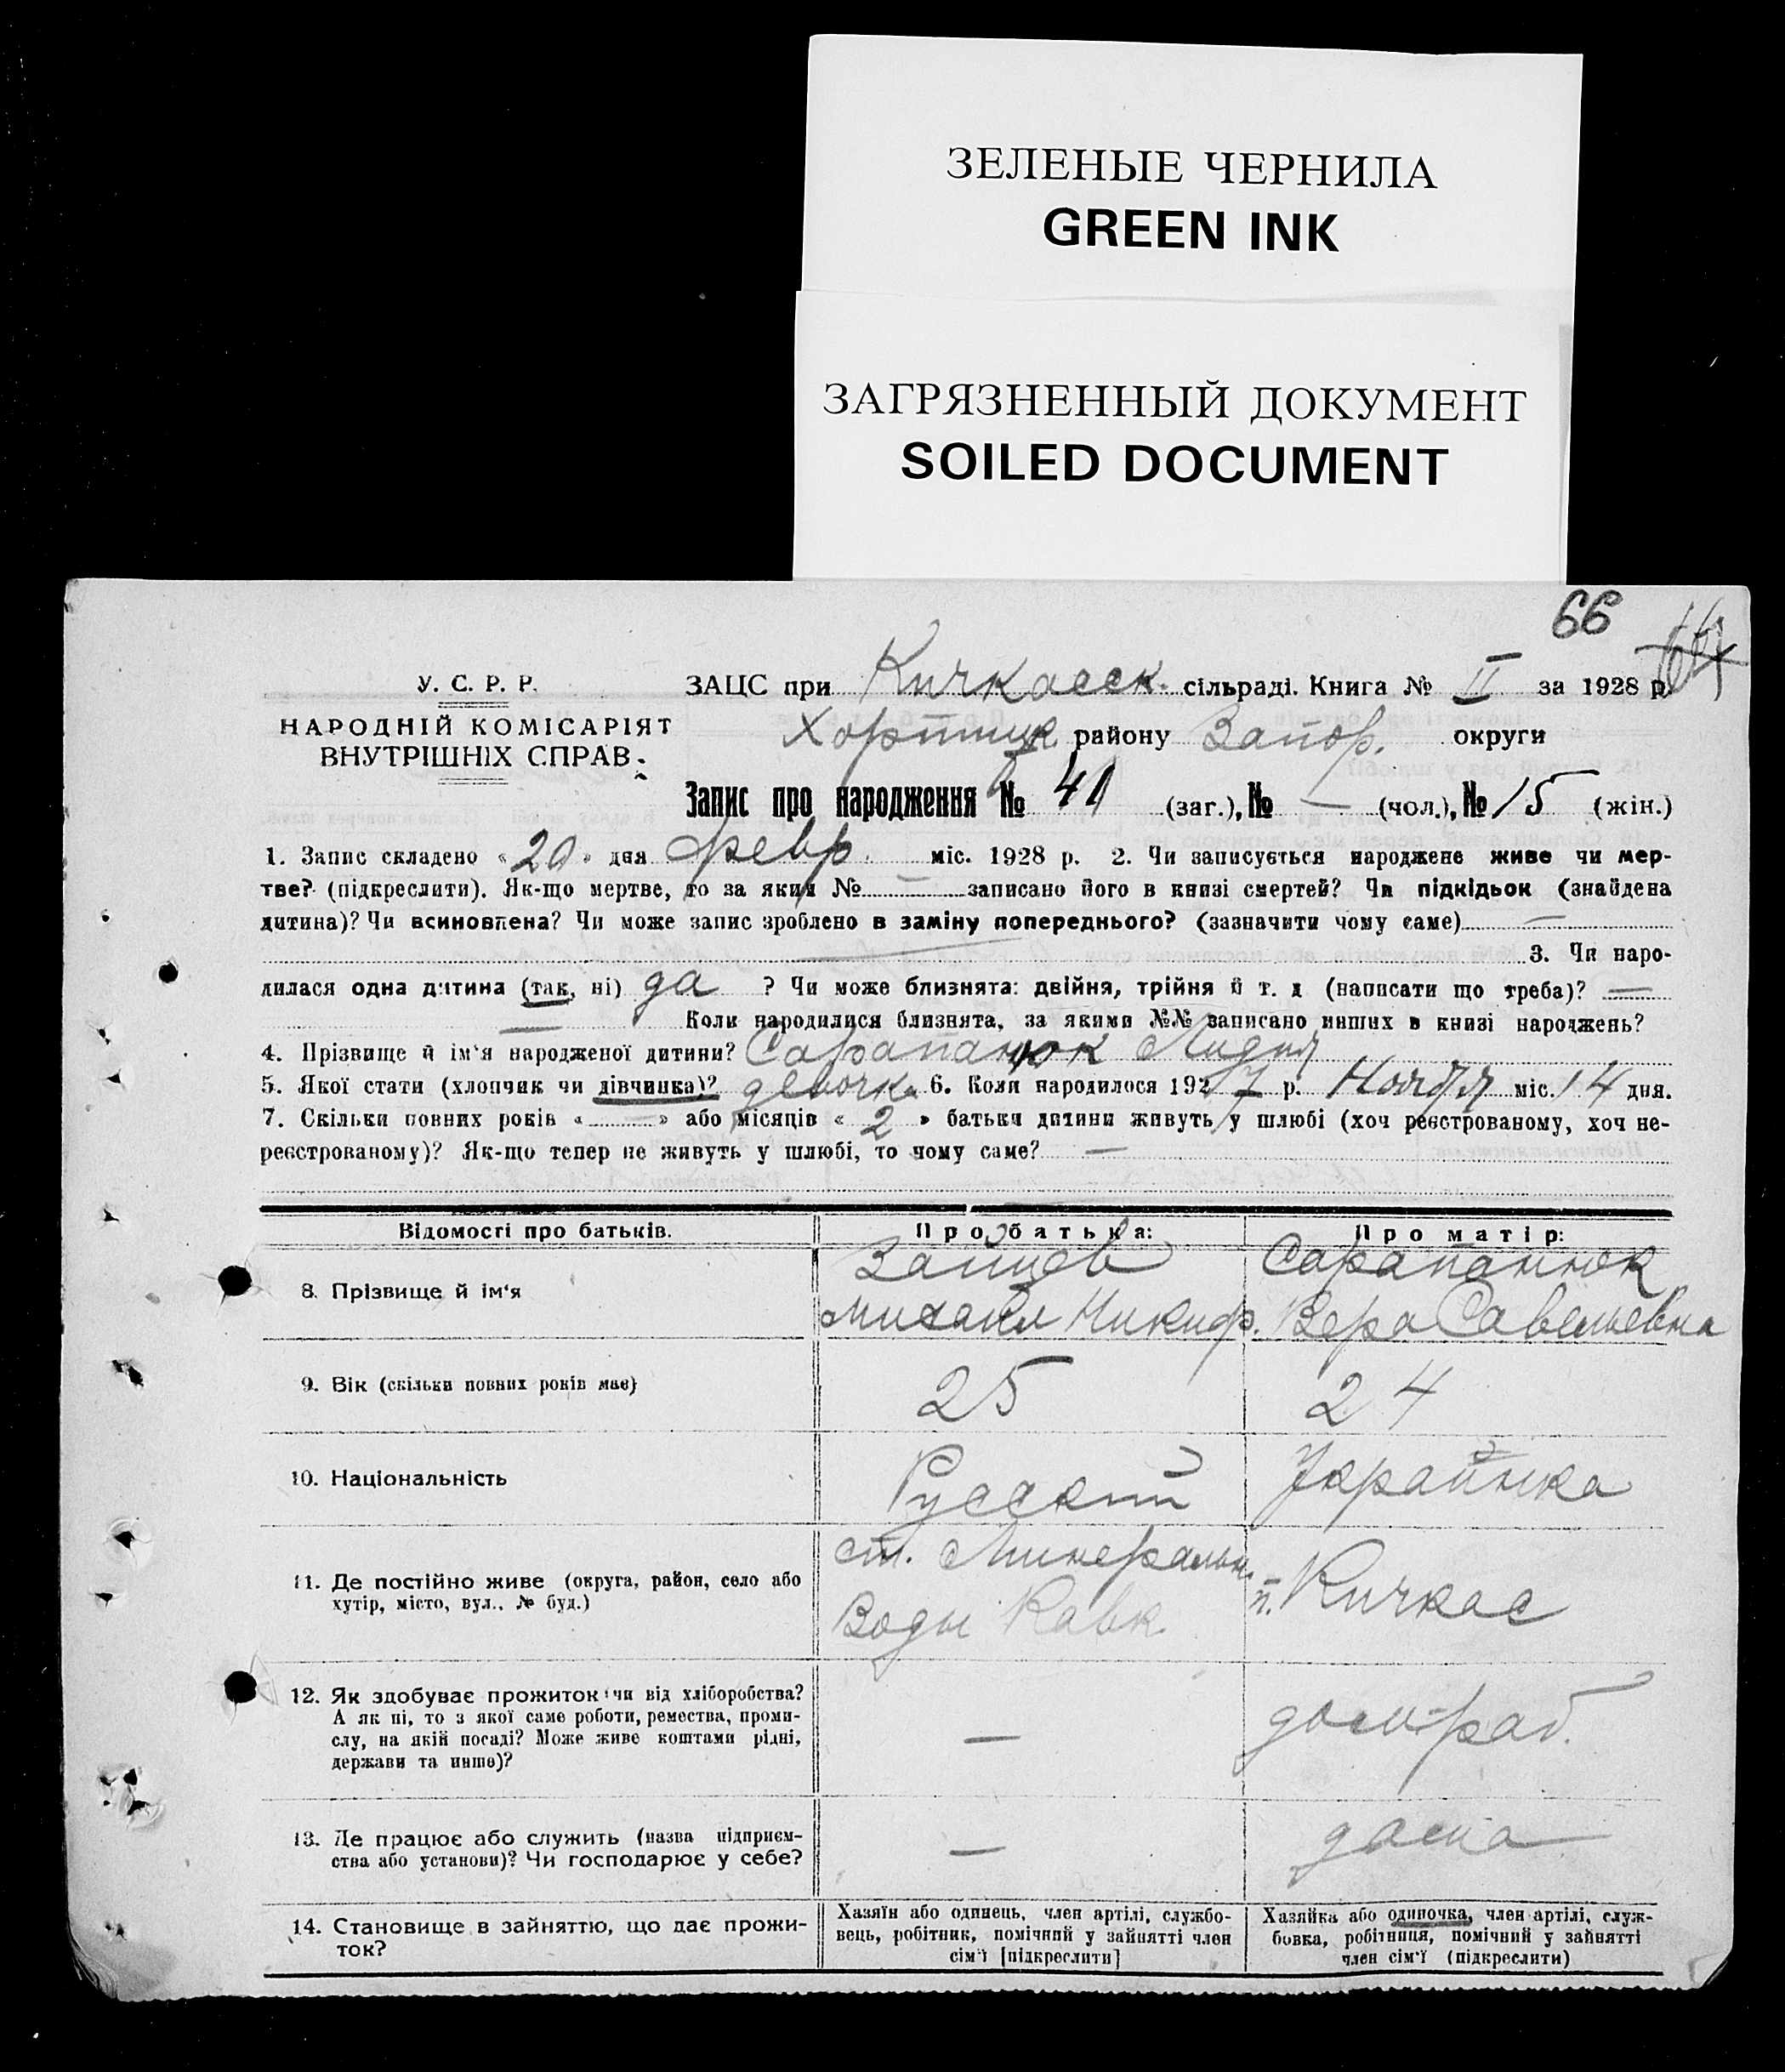 ЗЕЛЕНЫЕ ЧЕРНИЛА
GREEN INK
ЗАГРЯЗНЕННЫЙ ДОКУМЕНТ
SOILED DOCUMENT
66
У. С. Р. Р.
НАРОДНІЙ КОМІСАРІЯТ
ВНУТРІШНІХ СПРАВ.
ЗАЦС при Кичкасск. сільраді. Книга № II за 1928 р.
Хортицк району Запор. округи
Запис про народження № 41 (заг.), № — (чол.), № 15 (жін.)
1. Запис складено «20» дня февр. міс. 1928 р. 2. Чи записується народжене живе чи мер-
тве? (підкреслити). Як-що мертве, то за яким № — записано його в книзі смертей? Чи підкідьок (знайдена
дитина)? Чи всиновлена? Чи може запис зроблено в заміну попереднього? (зазначити чому саме) —
3. Чи наро-
дилася одна дитина (так, ні) да ? Чи може близнята: двійня, трійня й т. д (написати що треба)? —
— Коли народилися близнята, за якими №№ записано инших в книзі народжень?
4. Прізвище й ім'я народженої дитини? Сарапанюк Лидия
5. Якої стати (хлопчик чи дівчинка)? девочка 6. Коли народилося 1927 р. Ноября міс. 14 дня.
7. Скільки повних років «—» або місяців «2» батьки дитини живуть у шлюбі (хоч реєстрованому, хоч не-
реєстрованому)? Як-що тепер не живуть у шлюбі, то чому саме? —
Відомості про батьків. Про батька: Про матір:
8. Прізвище й ім'я
Зайцев
Михаил Никиф.
Сарапанюк
Вера Савельевна
9. Вік (скільки повних років має) 25 24
10. Національність Русский Украинка
11. Де постійно живе (округа, район, село або
хутір, місто, вул., № буд.)
ст. Минеральн.
Воды Кавк.
п. Кичкас
12. Як здобуває прожиток: чи від хліборобства?
А як ні, то з якої саме роботи, ремества, проми-
слу, на якій посаді? Може живе коштами рідні,
держави та инше)?
—
дом-раб.
13. Де працює або служить (назва підприєм-
ства або установи)? Чи господарює у себе?
—
дома
14. Становище в зайняттю, що дає прожи-
ток?
Хазяїн або одинець, член артілі, службо-
вець, робітник, помічний у зайнятті член
сім'ї [підкреслити]
Хазяйка або одиночка, член артілі, служ-
бовка, робітниця, помічний у зайнятті
член сім'ї (підкреслити)